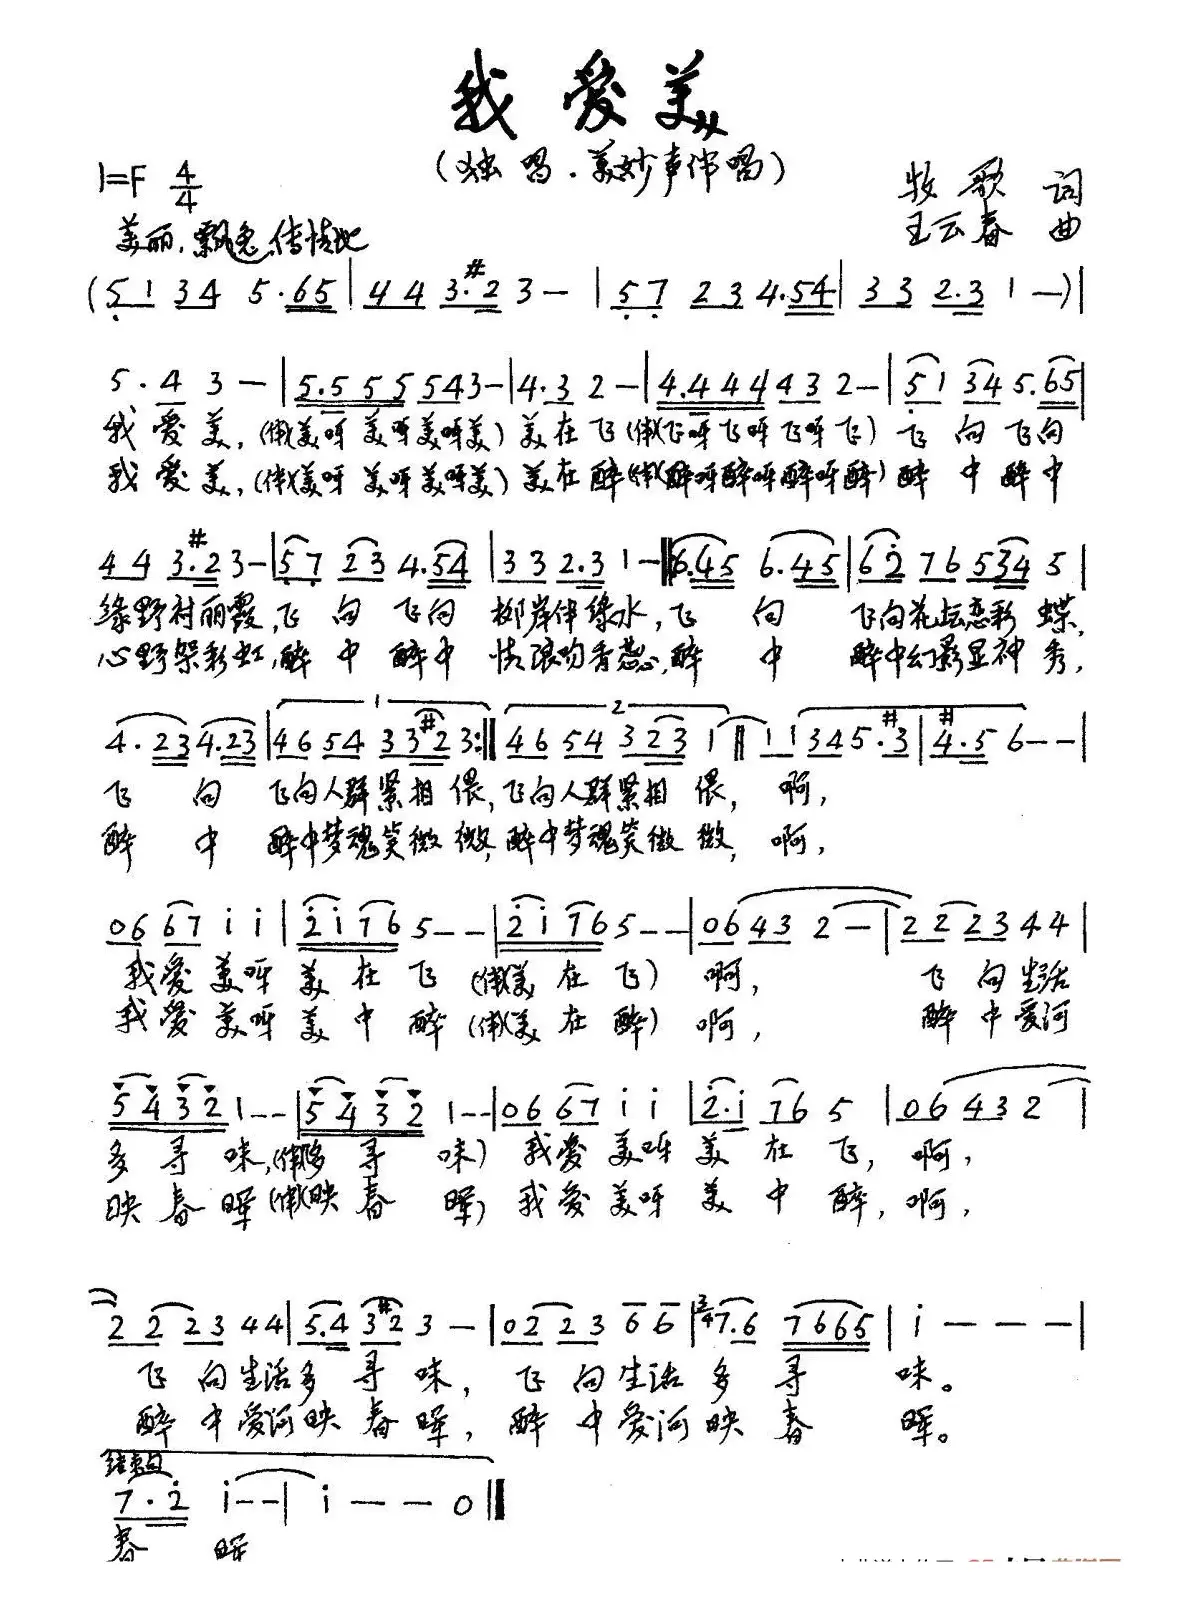 我爱美
(独唱.美妙声伴唱)
1=F 4/4
牧歌 词
美丽、飘逸、传情地
王云春 曲
(5 1 3 4 5·65 | 4 4 3·#2 3 — | 5 7 2 3 4·54 | 3 3 2·3 1 —) |
5·4 3 — | 5·5 5 5 5 4 3 — | 4·3 2 — | 4·4 4 4 4 3 2 — | 5 1 3 4 5·65 |
我爱美,(俄美呀美呀美呀美)美在飞(俄飞呀飞呀飞呀飞)飞向飞向
我爱美,(俄美呀美呀美呀美)美在醉(俄醉呀醉呀醉呀醉)醉中醉中
4 4 3·#2 3 — | 5 7 2 3 4·54 | 3 3 2·3 1 — 6·45 6·45 | 6 2 7 6 5 3 4 5 |
绿野衬丽霞,飞向飞向椰岸伴绿水,飞向飞向花坛恋彩蝶,
心野架彩虹,醉中醉中情浪吻香蕊,醉中醉中幻影显神秀,
4·23 4·23 | 1 4 6 5 4 3 3 #2 3 :‖ 2 4 6 5 4 3 2 3 1 ‖ 1 1 3 4 5·#3 | #4·5 6 — — |
飞向飞向人群紧相偎,飞向人群紧相偎,啊,
醉中醉中梦魂笑微微,醉中梦魂笑微微,啊,
0 6 6 7 i i | 2 i 7 6 5 — — | 2 i 7 6 5 — — | 0 6 4 3 2 — | 2 2 2 3 4 4 |
我爱美呀美在飞(俄美在飞)啊,飞向生活
我爱美呀美中醉(俄美在醉)啊,醉中爱河
5 4 3 2 1 — — | 5 4 3 2 1 — — | 0 6 6 7 i i | 2·i 7 6 5 | 0 6 4 3 2 |
多寻味,(俄多寻味)我爱美呀美在飞,啊,
映春晖(俄映春晖)我爱美呀美中醉,啊,
2 2 2 3 4 4 | 5·4 3 #2 3 — | 0 2 2 3 6 6 | 3/4 7·6 7 6 6 5 | i — — — |
飞向生活多寻味,飞向生活多寻味。
醉中爱河映春晖,醉中爱河映春晖。
结束句
7·2 i — — | i — — 0 ‖
春晖